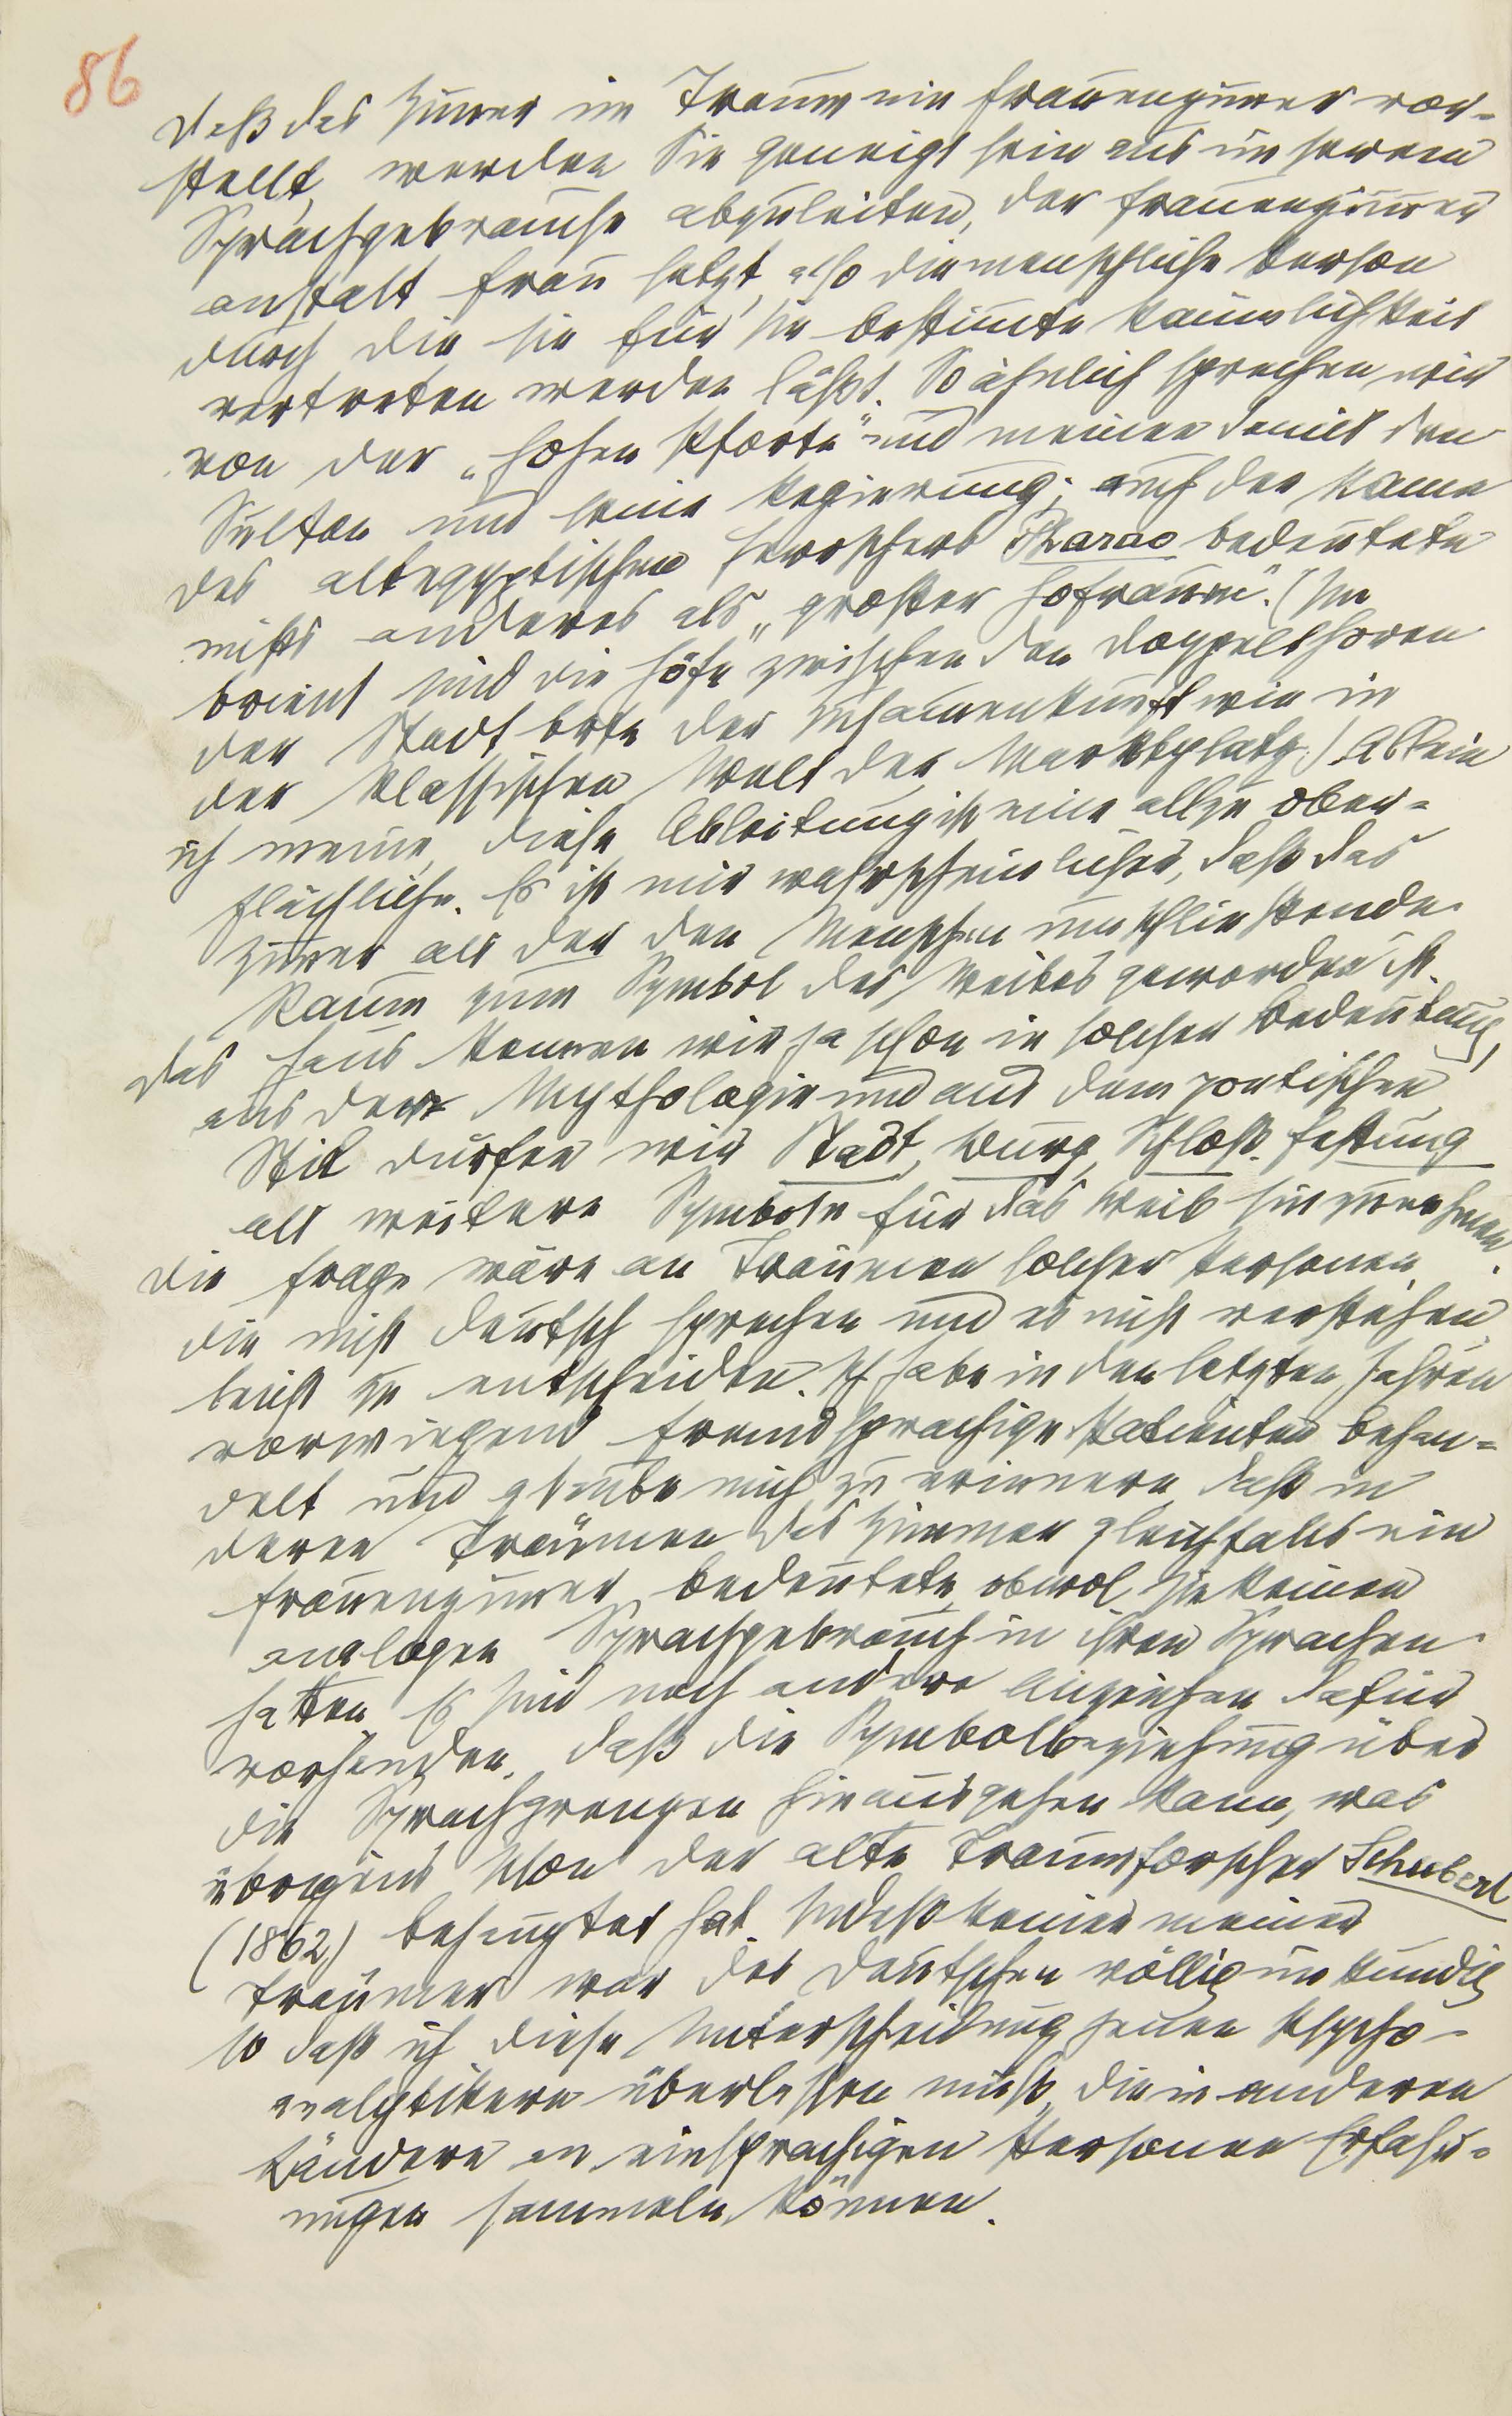 86
daß das Zimmer im Traum ein Frauenzimmer vor-
stellt, werden Sie geneigt sein aus unserem
Sprachgebrauche abzuleiten, der Frauenzimmer
anstatt Frau setzt, also die menschliche Person
durch die sie für sie bestimmte Räumlichkeit
vertreten werden läßt. So ähnlich sprechen wir
von der „hohen Pforte" und meinen damit den
Sultan und seine Regierung; auch der Name
des altegyptischen Herrschers Pharao bedeutete
nichts anderes als „großer Hofraum". (Im
Orient sind die Höfe zwischen den Doppelthoren
der Stadt Orte der Zusammenkunft wie in
der klassischen Welt der Marktplatz.) Allein
ich meine, diese Ableitung ist eine allzu ober-
flächliche. Es ist mir wahrscheinlicher, daß das
Zimmer als der den Menschen umschließende
Raum zum Symbol des Weibes geworden ist.
Das Haus kennen wir ja schon in solcher Bedeutung,
aus der Mythologie und aus dem poetischen
Stil dürfen wir Stadt, Burg, Schloß, Festung
als weitere Symbole für das Weib hinzunehmen.
Die Frage wäre an Träumen solcher Personen,
die nicht deutsch sprechen und es nicht verstehen,
leicht zu entscheiden. Ich habe in den letzten Jahren
vorwiegend fremdsprachige Patienten behan-
delt und glaube mich zu erinnern, daß in
deren Träumen das Zimmer gleichfalls ein
Frauenzimmer bedeutete, obwol sie keinen
analogen Sprachgebrauch in ihren Sprachen
hatten. Es sind noch andere Anzeichen dafür
vorhanden, daß die Symbolbeziehung über
die Sprachgrenzen hinausgehen kann, was
übrigens schon der alte Traumforscher Schubert
(1862) behauptet hat. Indeß keiner meiner
Träumer war des Deutschen völlig unkundig,
so daß ich diese Unterscheidung jenen Psycho-
analytikern überlassen muß, die in anderen
Ländern an einsprachigen Personen Erfahr-
ungen sammeln können.